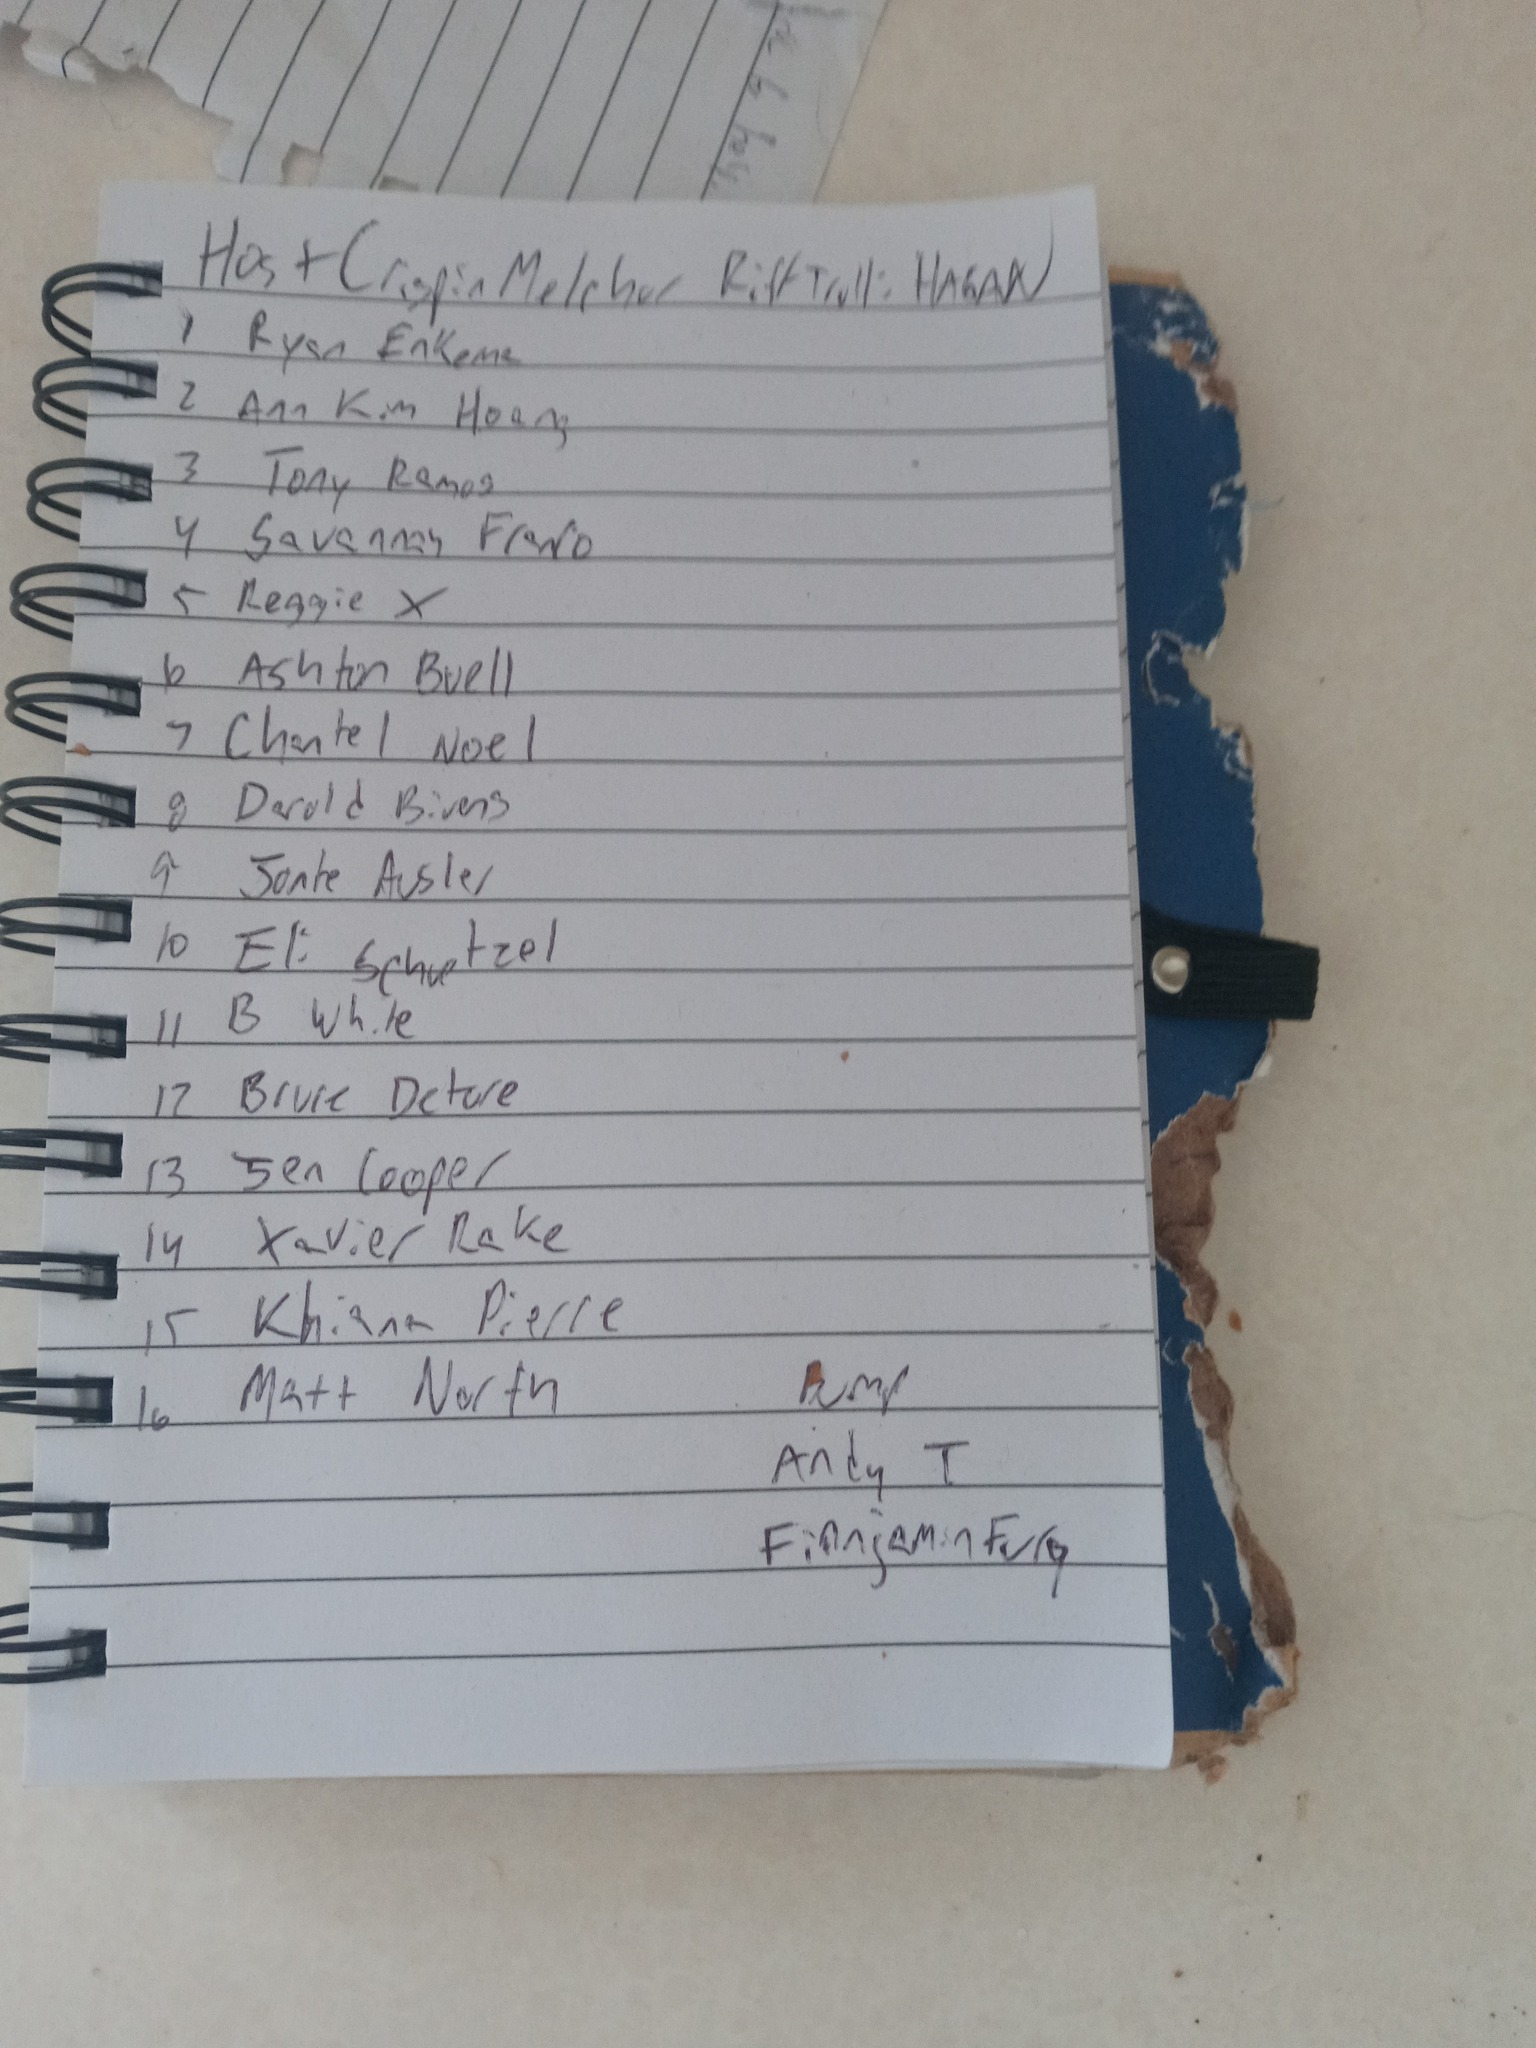 Host Crispin Melchor Rift Troll: HAGAN
1 Ryan Enkema
2 Ann Kim Hoang
3 Tony Ramos
4 Savannah
5 Reggie X
6 Ashton Buell
7 Chantel Noel
8 Darold Bivens
9 Jonte Ausler
10 Eli Schuetzel
11 B White
12 Detore
13 Jen Cooper
14 Xavier Rake
15 Khiana Pierre
16 Matt North
Andy T
Finnjamin